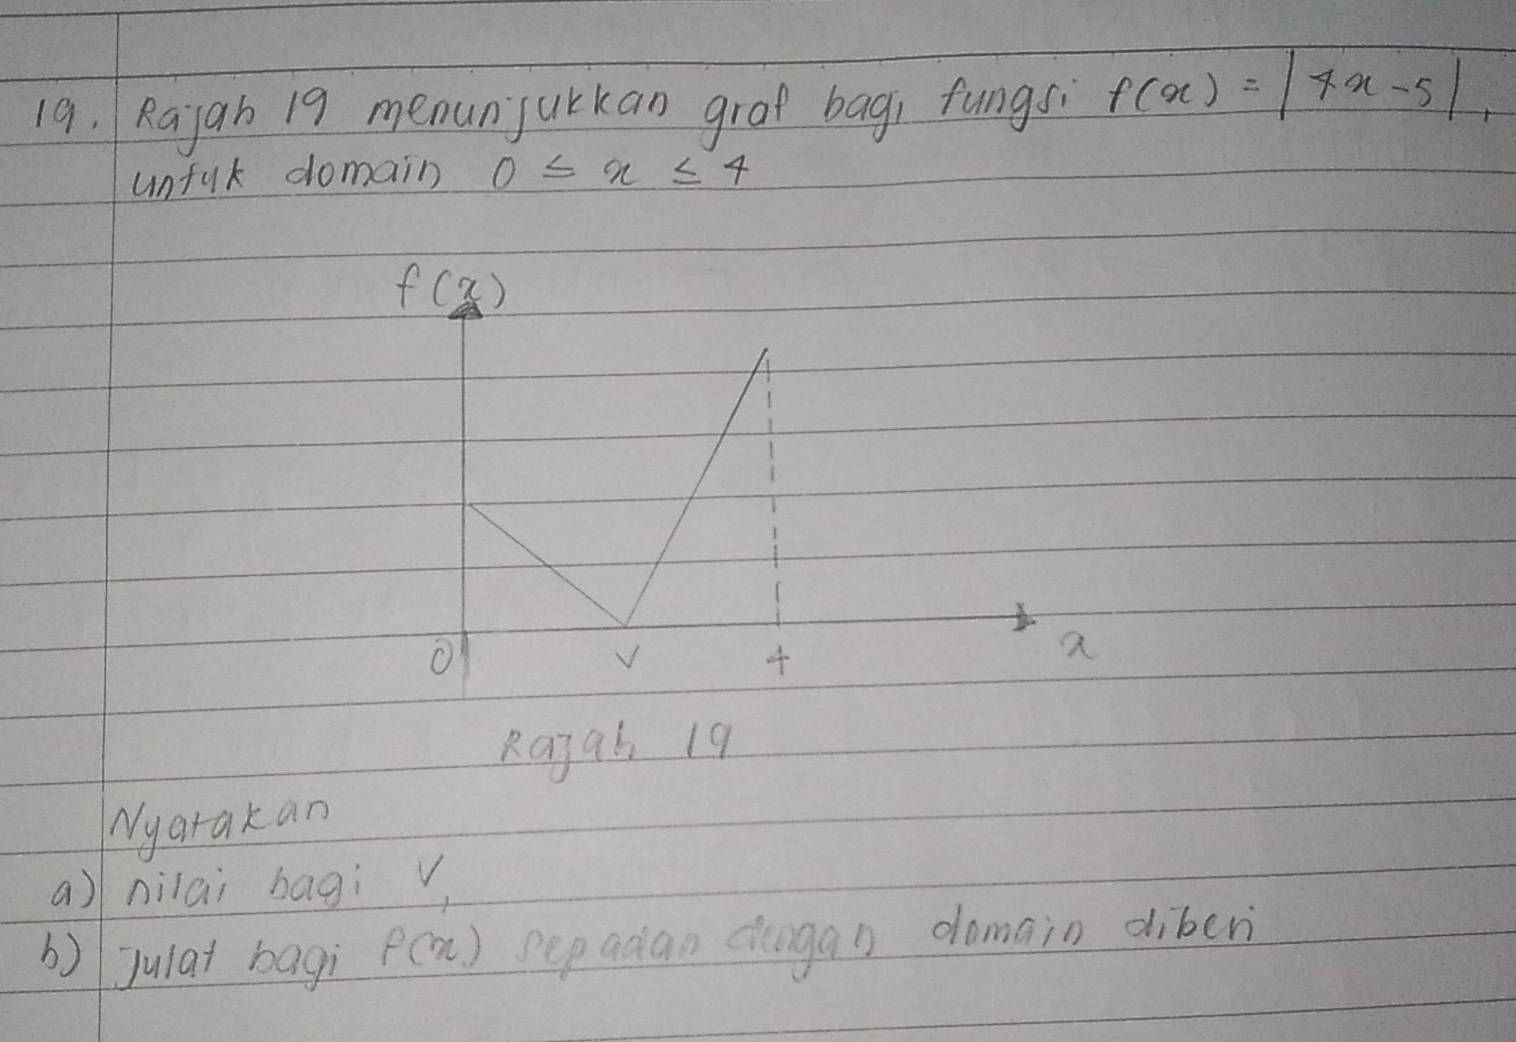 19. Rajah 19 menunjukkan graf bagi fungsi f(x) = |4x - 5|,
untuk domain 0 ≤ x ≤ 4
f(x)
0 v 4 x
Rajah 19
Nyatakan
a) nilai bagi v,
b) Julat bagi f(x) sepadan dengan domain diberi